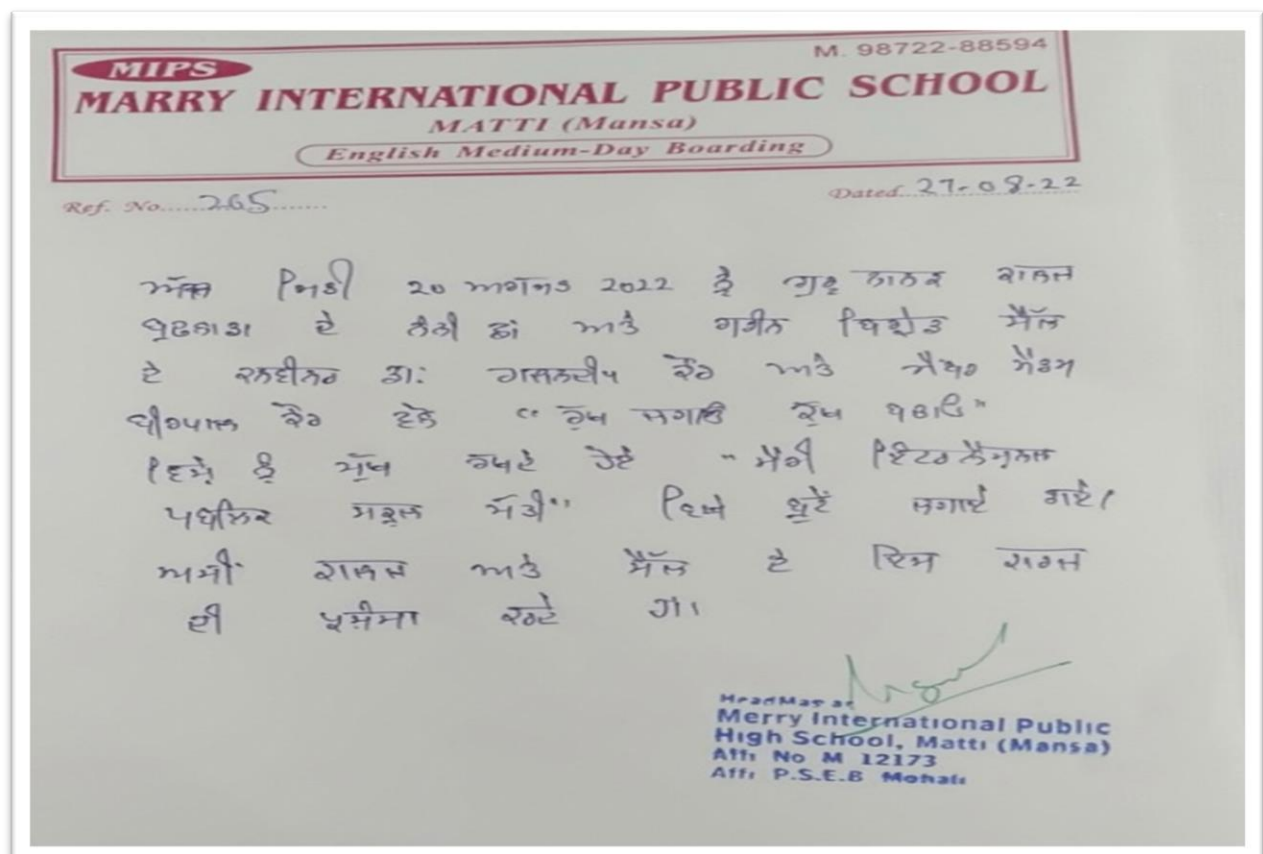 M. 98722-88594
MIPS
MARRY INTERNATIONAL PUBLIC SCHOOL
MATTI (Mansa)
English Medium-Day Boarding
Ref. No.....265.......
Dated..27-08-22
ਅੱਜ ਮਿਤੀ 20 ਅਗਸਤ 2022 ਨੂੰ ਗੁਰੂ ਨਾਨਕ ਕਾਲਜ
ਬੁਢਲਾਡਾ ਦੇ ਨੰਨੀ ਛਾਂ ਅਤੇ ਗਰੀਨ ਥਿਕੇਤ ਸੈੱਲ
ਦੇ ਕਨਵੀਨਰ ਡਾ: ਗਗਨਦੀਪ ਕੌਰ ਅਤੇ ਮੈਂਬਰ ਮੈਡਮ
ਵੀਰਪਾਲ ਕੌਰ ਵਲੋਂ "ਰੁੱਖ ਲਗਾਓ ਰੁੱਖ ਬਚਾਓ"
ਵਿਸ਼ੇ ਨੂੰ ਮੁੱਖ ਰੱਖਦੇ ਹੋਏ "ਮੈਰੀ ਇੰਟਰਨੈਸ਼ਨਲ
ਪਬਲਿਕ ਸਕੂਲ ਮੱਤੀ" ਵਿਖੇ ਬੂਟੇ ਲਗਾਏ ਗਏ।
ਅਸੀਂ ਕਾਲਜ ਅਤੇ ਸੈੱਲ ਦੇ ਇਸ ਕਾਰਜ
ਦੀ ਪ੍ਰਸ਼ੰਸਾ ਕਰਦੇ ਹਾਂ।
Merry International Public
High School, Matti (Mansa)
Affi No M 12173
Affi P.S.E.B Mohali